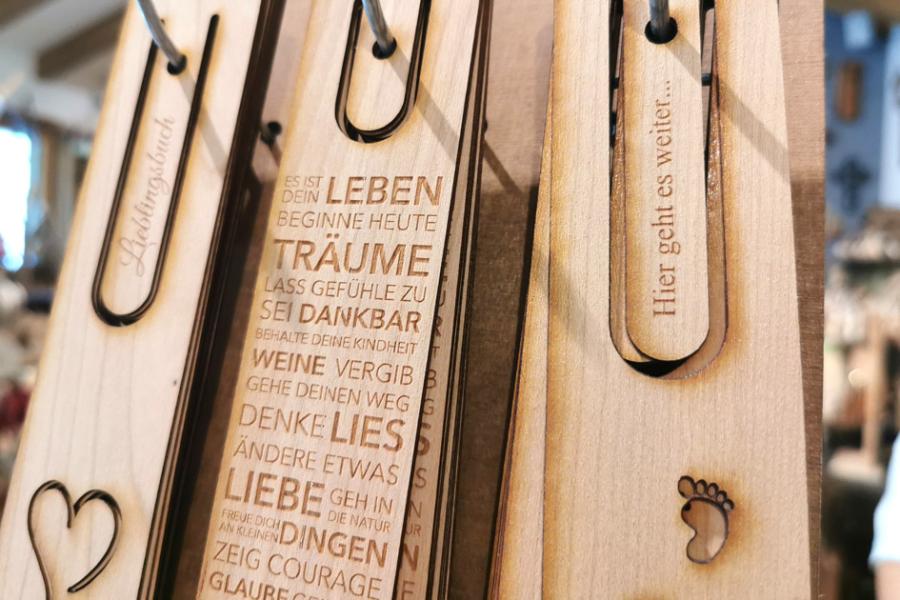 Lieblingsbuch
ES IST
DEIN LEBEN
BEGINNE HEUTE
TRÄUME
LASS GEFÜHLE ZU
SEI DANKBAR
BEHALTE DEINE KINDHEIT
WEINE VERGIB
GEHE DEINEN WEG
DENKE LIES
ÄNDERE ETWAS
LIEBE GEH IN
DIE NATUR
FREUE DICH
AN KLEINEN DINGEN
ZEIG COURAGE
GLAUBE
Hier geht es weiter...